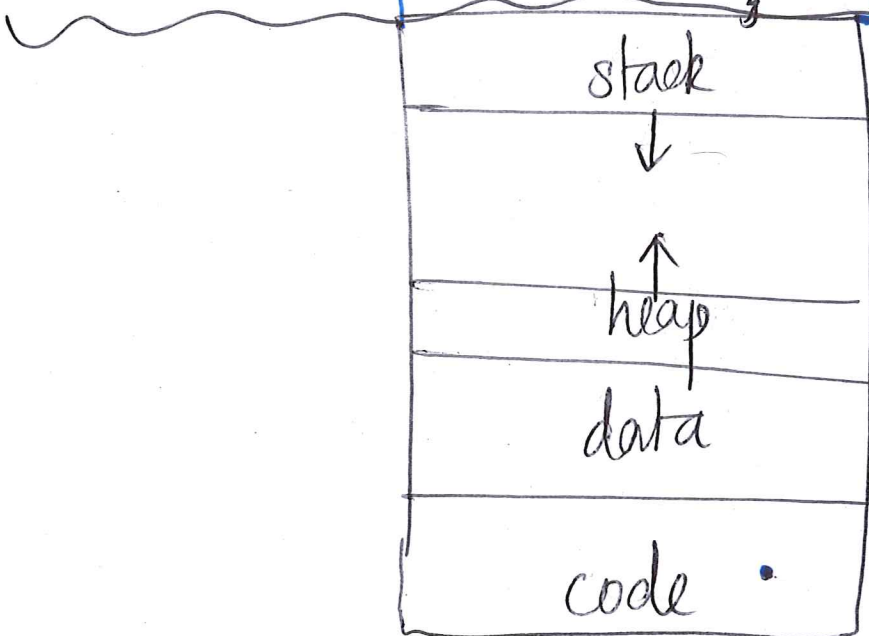 stack
heap
data
code